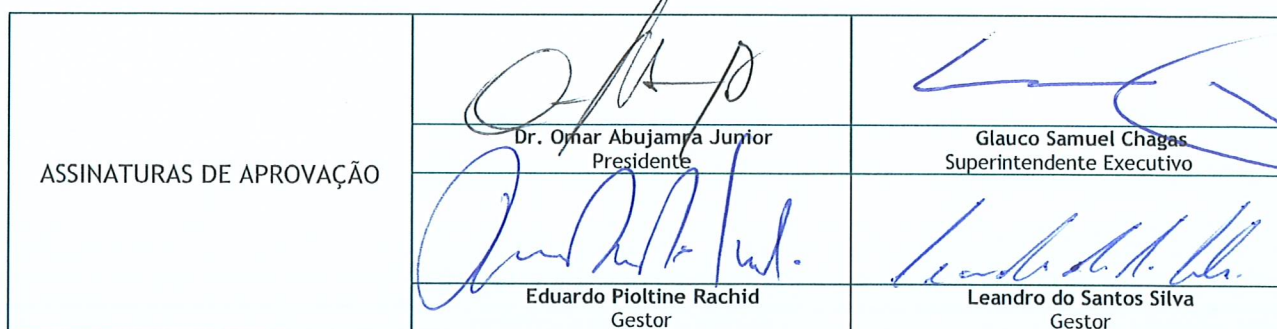 ASSINATURAS DE APROVAÇÃO
Dr. Omar Abujamra Junior
Presidente
Glauco Samuel Chagas
Superintendente Executivo
Eduardo Pioltine Rachid
Gestor
Leandro do Santos Silva
Gestor